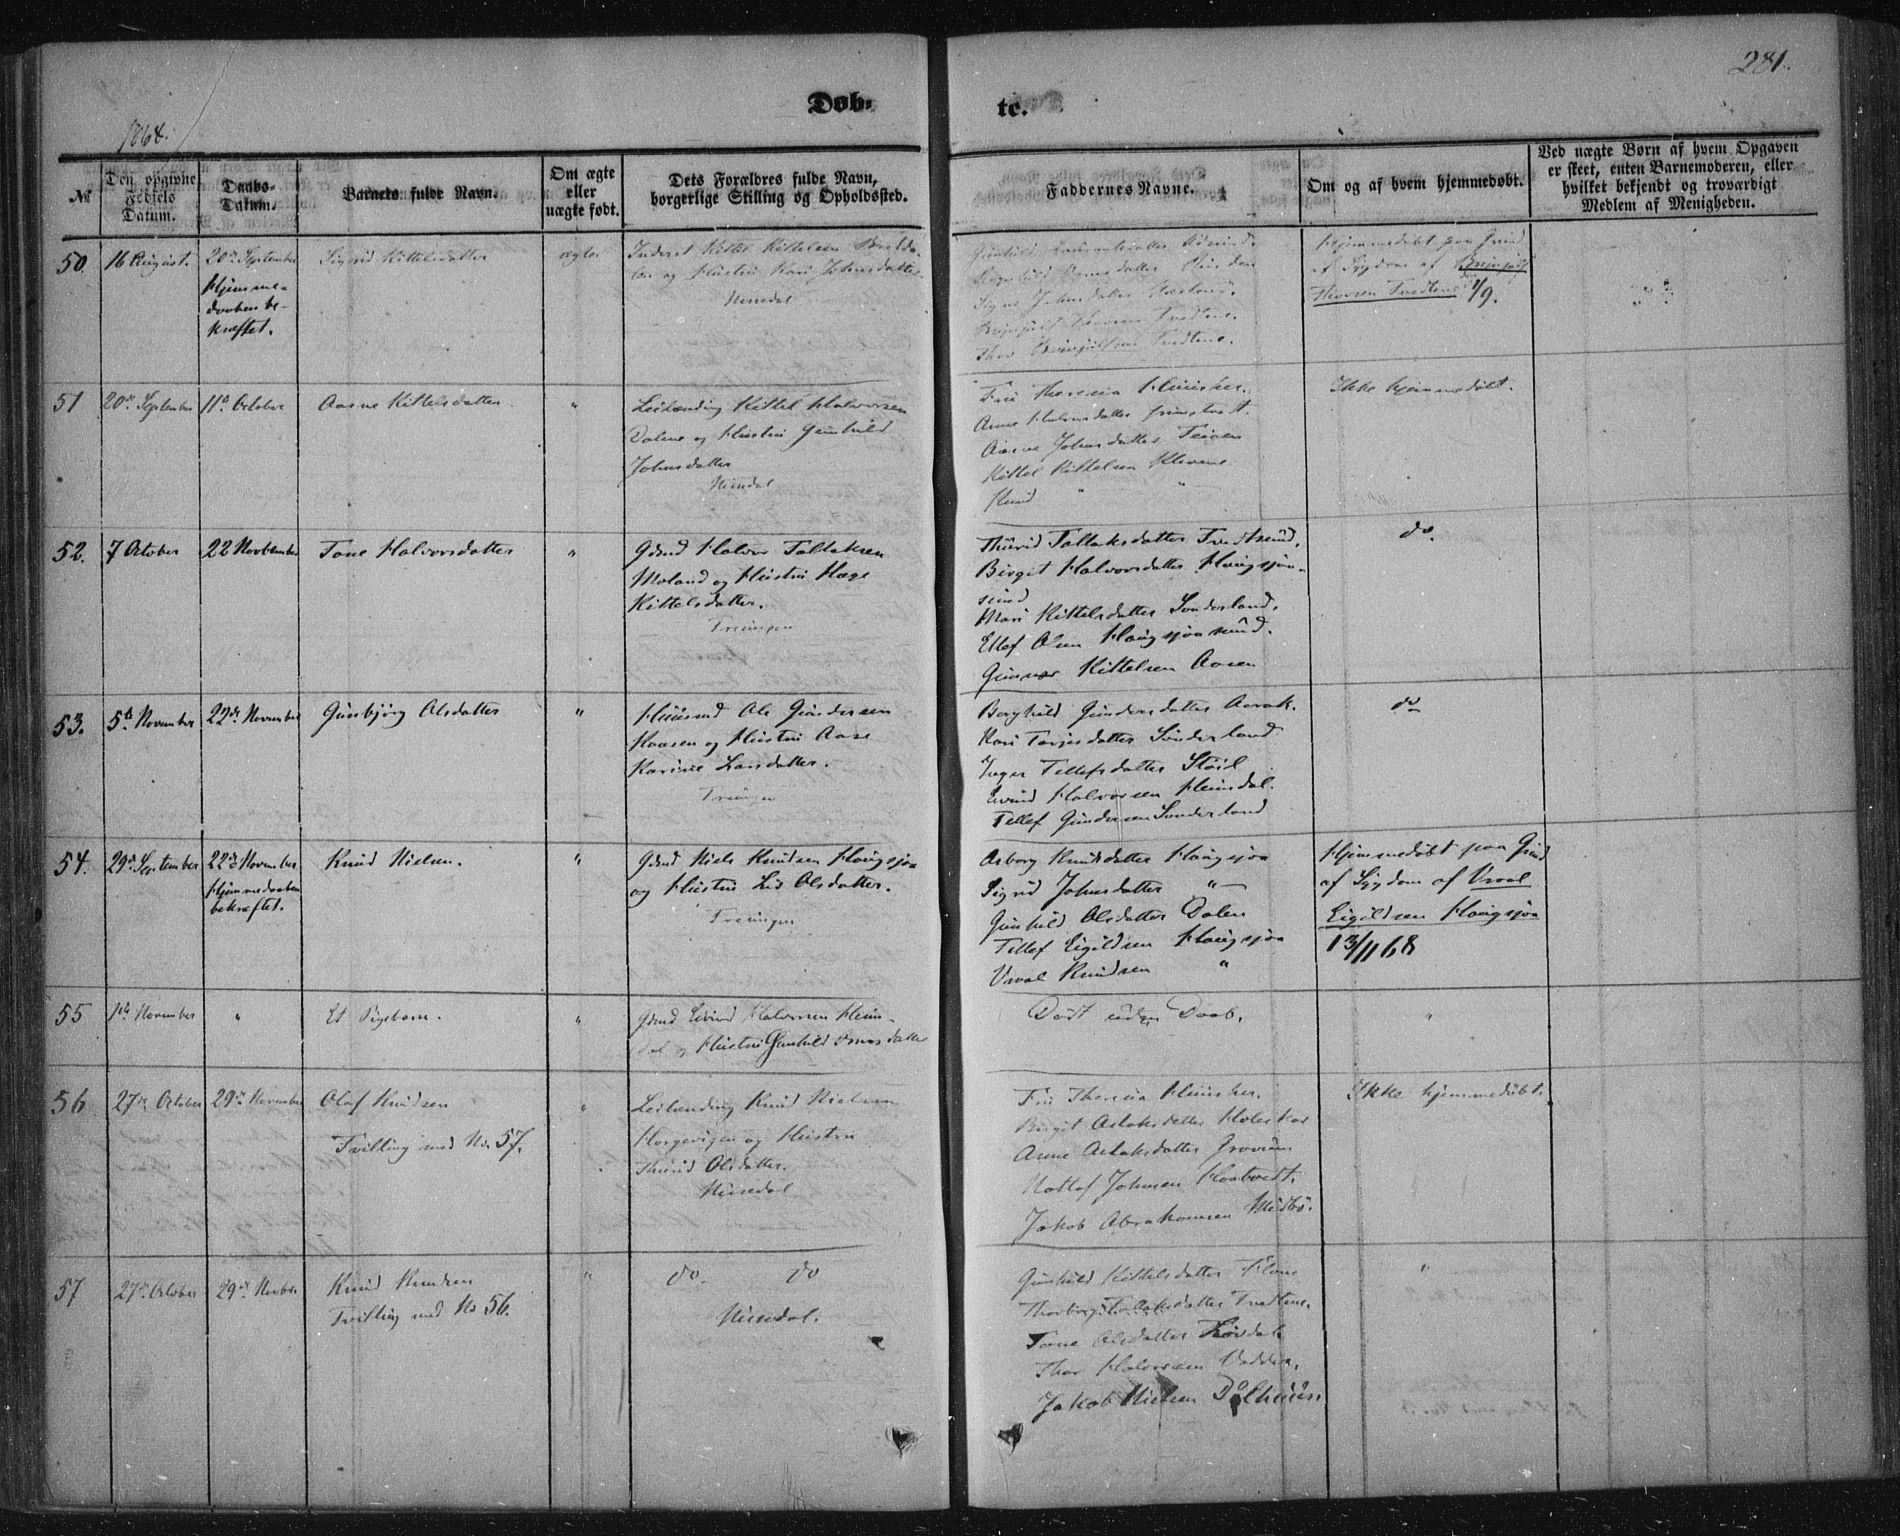 281.
Døb-
te.
1868.
№
Den opgivne Fødsels Datum.
Daabs-Datum.
Barnets fulde Navn.
Om ægte eller uægte født.
Dets Forældres fulde Navn, borgerlige Stilling og Opholdssted.
Faddernes Navne.
Om og af hvem hjemmedøbt.
Ved uægte Børn af hvem Opgaven er skeet, enten Barnemoderen, eller hvilket bekjendt og troværdigt Medlem af Menigheden.
50.
16 August.
20de September
Hjemme-
daaben be-
kræftet.
Sigrid Kittelsdatter
ægte.
Inderst Kittel Kittelsen
og Hustru Kari Johnsdatter
Nissedal
Signe Johnsdatter
Brynjulf Thorsen Tvedtene.
Thor Brynjulfsen Tvedtene.
Hjemmedøbt paa Grund
af Sygdom af Brynjulf
Thorsen Tvedtene 1/9.
51
20de September
11te October
Aasne Kittelsdatter
"
Leilænding Kittel Halvorsen
Dalene og Hustru Gunhild
Johnsdatter
Nissedal
Fru Theresia
Anne Halvorsdatter
Aasne Johnsdatter
Kittel Kittelsen
Knud " "
Ikke hjemmedøbt.
52.
7 October
22 November
Tone Halvorsdatter
"
Gbrd Halvor Tallaksen
Moland og Hustru Hæge
Kittelsdatter.
Treungen
Thurid Tallaksdatter Tvedtsund.
Birgit Halvorsdatter Haugsjaa-
sund
Mari Kittelsdatter Sønderland.
Ellef Olsen Haugsjaasund.
Gunnar Kittelsen Aasen
do.
53.
5te November
22de November
Gunbjørg Olsdatter
"
Huusmd Ole Gundersen
Haasen og Hustru Aase
Karine Larsdatter.
Treungen
Borghild Gundersdatter Aarak.
Kari Terjesdatter Sønderland
Inger Tellefsdatter Støil
Eivind Halvorsen Heimdal.
Tellef Gundersen Sønderland
do
54.
29de September
22de November
Hjemmedaaben
bekræftet.
Knud Nielsen.
"
Gbrd Niels Knudsen Haugsjaa
og Hustru Liv Olsdatter.
Treungen
Asborg Knudsdatter Haugsjaa
Sigrid Johnsdatter "
Gunhild Olsdatter Dalen
Tellef Eigildsen Haugsjaa
Vraal Knudsen "
Hjemmedøbt paa Grund
af Sygdom af Vraal
Eigildsen Haugsjaa
13/11 68
55
1ste November
"
Et Pigebarn.
"
Gbrd Eivind Halvorsen Heim-
dal og Hustru Gunhild
Dødt uden Daab.
"
56
27de October
29de November
Olaf Knudsen
Tvilling med No. 57.
"
Leilænding Knud Nielsen
Horgevigen og Hustru
Thurid Olsdatter.
Nissedal
Fru Theresia
Birgit Aslaksdatter
Anne Aslaksdatter
Jakob Abrahamsen
Ikke hjemmedøbt.
57
27de October
29de Novbr
Knud Knudsen
Tvilling med No 56.
"
do. do
Nissedal.
Gunhild Kittelsdatter
Thorborg Tallaksdatter Tvedtene.
Tone Olsdatter
Thor Halvorsen
Jakob Nielsen
"